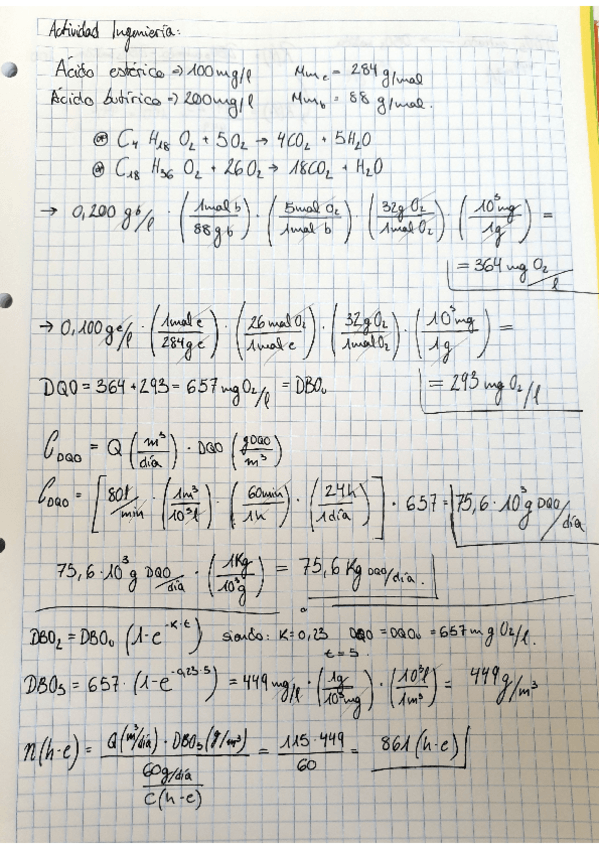 Actividad Ingeniería:
Ácido estérico => 100 mg/l Mm e = 284 g/mol
Ácido butírico => 200 mg/l Mm b = 88 g/mol.
⊛ C4 H18 O2 + 5O2 → 4CO2 + 5H2O
⊛ C18 H36 O2 + 26O2 → 18CO2 + H2O
→ 0,200 g b/l · (1mol b / 88 g b) · (5mol O2 / 1mol b) · (32g O2 / 1mol O2) · (10³mg / 1g) =
= 364 mg O2/l
→ 0,100 g e/l · (1mol e / 284g e) · (26mol O2 / 1mol e) · (32g O2 / 1mol O2) · (10³mg / 1g) =
= 293 mg O2/l
DQO = 364 + 293 = 657 mg O2/l = DBOu
C DQO = Q (m³/día) · DQO (gDQO/m³)
C DQO = [80l/min · (1m³/10³l) · (60min/1h) · (24h/1día)] · 657 = 75,6 · 10³ g DQO/día
75,6 · 10³ g DQO/día · (1Kg/10³g) = 75,6 Kg DQO/día.
DBO2 = DBOu (1-e^-K·t) siendo: K=0,23 DQO = DQOu = 657 mg O2/l.
t = 5
DBO5 = 657 · (1-e^-0,23·5) = 449 mg/l · (1g/10³mg) · (10³l/1m³) = 449 g/m³
n(h-e) = Q(m³/día) · DBO5 (g/m³) / (60g/día / C(h-e)) = 115·449 / 60 = 861 (h-e)